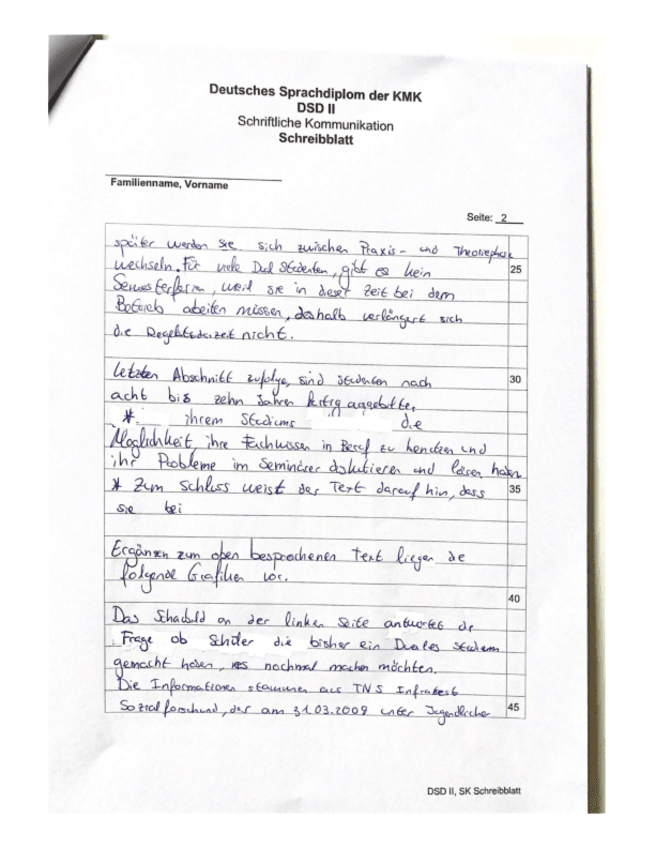 Deutsches Sprachdiplom der KMK
DSD II
Schriftliche Kommunikation
Schreibblatt
Familienname, Vorname
Seite: 2
später werden sie sich zwischen Praxis- und Theoriephase
wechseln. Für viele Dual Studenten, gibt es kein 25
Semesterferien, weil sie in dieser Zeit bei dem
Betrieb arbeiten müssen, deshalb verlängert sich
die nicht.
letzten Abschnitt zufolge, sind studenten nach 30
acht bis zehn Jahren fertig
*. ihrem Studiums die
Moglichkeit ihre Fachwissen in Beruf zu benutzen und
ihr Probleme im Seminäser diskutieren und lösen haben
* Zum Schluss weist der Text darauf hin, dass 35
sie bei
Ergänzen zum open besprochenen Text liegen de
folgende Grafiken vor.
40
Das Schaubild an der linken Seite antwortet dr
Frage ob Schüler die bisher ein Duales studium
gemacht haben, es nochmal machen möchten.
Die Informationen stammen aus TNS Infratest
Sozialforschund, der am 31.03.2009 unter Jugendlicher 45
DSD II, SK Schreibblatt